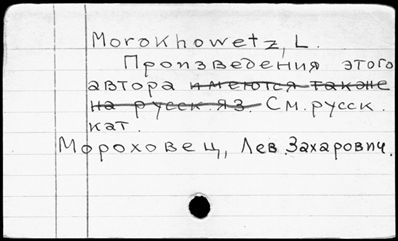 Morokhowetz, L.
Произведения этого
автора имеются также
на русск. яз. См. русск.
кат.
Мороховец, Лев Захарович.